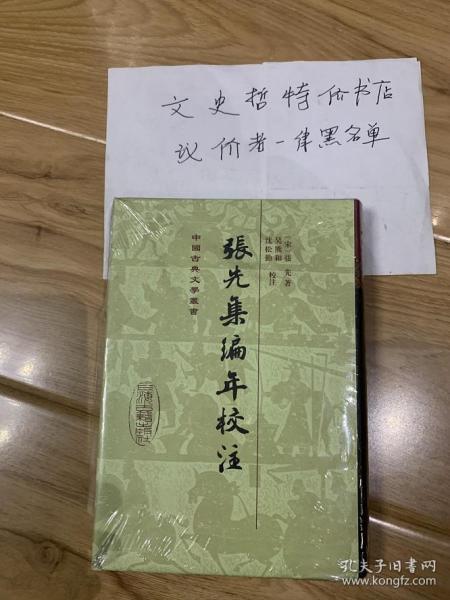 文史哲特价书店
议价者一律黑名单
〔宋〕張先著
吳熊和
沈松勤 校注
張先集編年校注
中國古典文學叢書
上海古籍出版社
孔夫子旧书网
www.kongfz.com